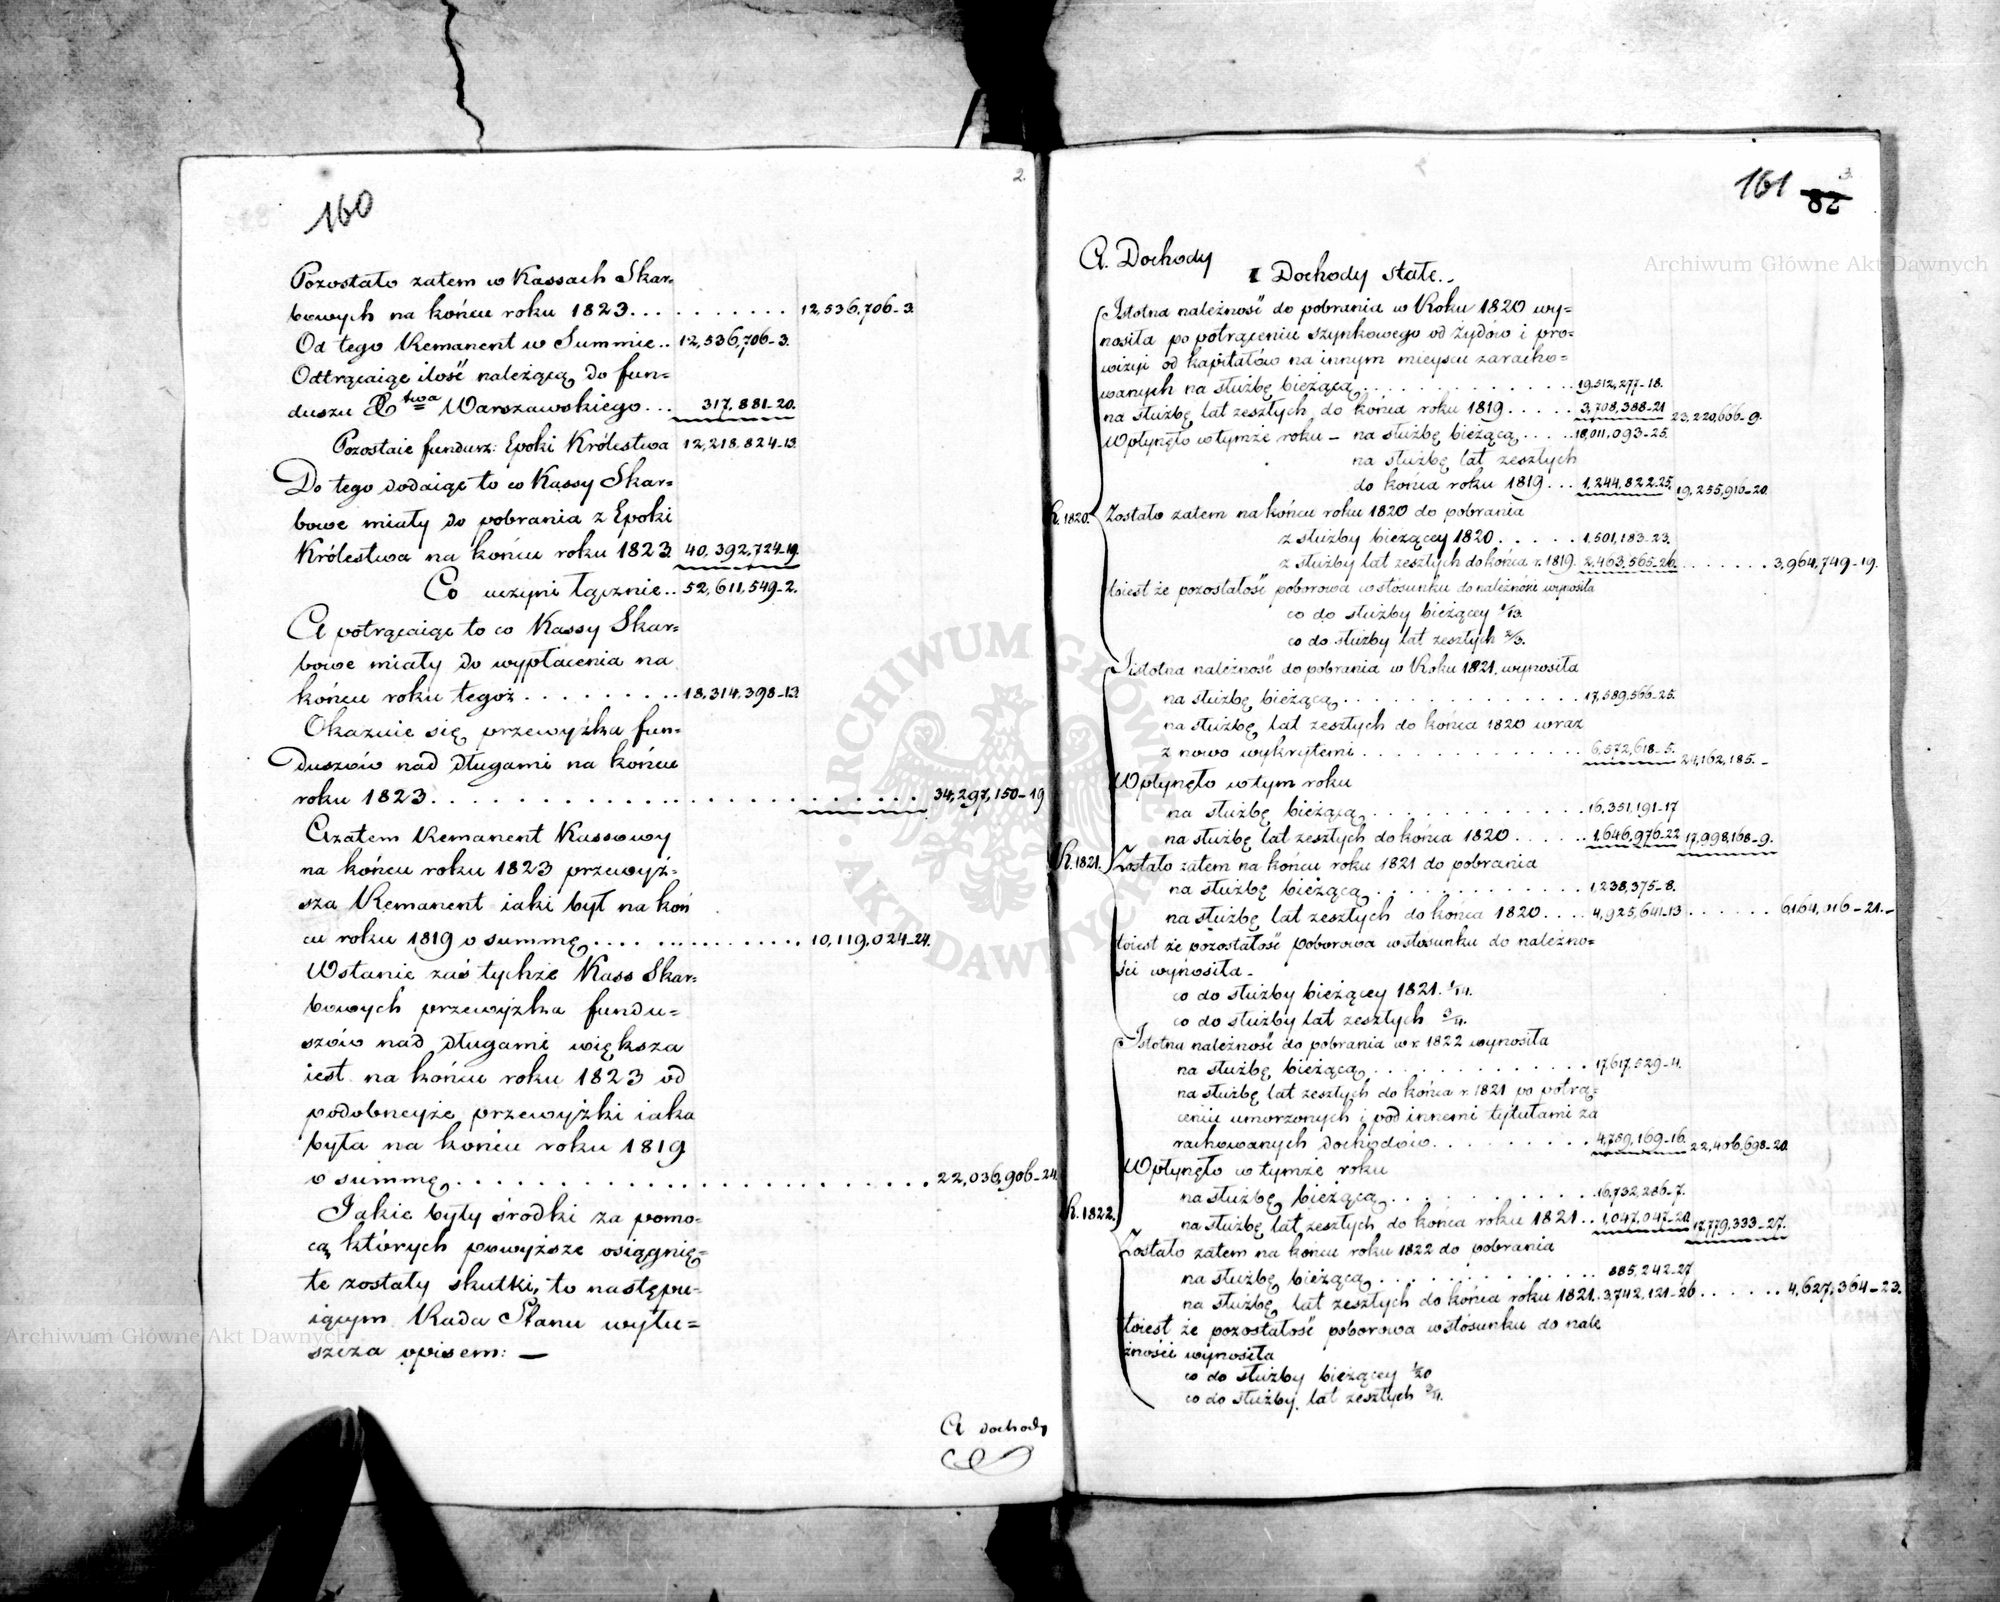 2.
160
Pozostało zatem w Kassach Skar=
bowych na końcu roku 1823 . . . . . . . . . . 12,536,706-3.
Od tego Remanent w Summie . . 12,536,706-3.
Odtrącaiąc ilość należącą do fun=
duszu Xtwa Warszawskiego . . . 317,881-20.
Pozostaie fundusz: Epoki Królestwa 12,218,824-13
Do tego dodaiąc to co Kassy Skar=
bowe miały do pobrania z Epoki
Królestwa na końcu roku 1823 40,392,724-19.
Co uczyni łącznie . . 52,611,549-2.
A potrącaiąc to co Kassy Skar=
bowe miały do wypłacenia na
końcu roku tegoż . . . . . . . . . 18,314,398-13
Okazuie się przewyżka fun=
duszów nad długami na końcu
roku 1823 . . . . . . . . . . . . . . . . . . . . . . . . 34,297,150-19
A zatem Remanent Kassowy
na końcu roku 1823 przewyż=
sza Remanent iaki był na koń
cu roku 1819 o summę . . . . . . . . . . . . . 10,119,024-24.
W stanie zaś tychże Kass Skar=
bowych przewyżka fundu=
szów nad długami większa
iest na końcu roku 1823 od
podobneyże przewyżki iaka
była na końcu roku 1819
o summę . . . . . . . . . . . . . . . . . . . . . . . . 22,036,906-24.
Jakie były środki za pomo=
cą których powyższe osiągnię=
te zostały skutki, to następu=
iącym Rada Stanu wyłu=
szcza opisem: —
A dochody
3.
161 82
A. Dochody
I Dochody stałe. -
Istotna należność do pobrania w Roku 1820 wy=
nosiła po potrąceniu szynkowego od żydów i pro=
wizyi od kapitałów na innym mieyscu zaracho=
wanych na służbę bieżącą . . . . . . . . . . . . . . 19,512,277-18.
na służbę lat zeszłych do końca roku 1819 . . . . . 3,708,388-21 23,220,666-9.
Wpłynęło w tymże roku - na służbę bieżącą . . . . 18,011,093-25.
na służbę lat zeszłych
do końca roku 1819 . . . 1,244,822-25. 19,255,916-20.
R. 1820. Zostało zatem na końcu roku 1820 do pobrania
z służby bieżącey 1820 . . . . . 1,501,183-23.
z służby lat zeszłych do końca r. 1819. 2,463,565-26. . . . . . . . 3,964,749-19.
toiest że pozostałość poborowa w stosunku do należności wynosiła
co do służby bieżącey 1/13.
co do służby lat zeszłych 2/3.
Istotna należność do pobrania w Roku 1821, wynosiła
na służbę bieżącą . . . . . . . . . . . . . . . 17,589,566-25.
na służbę lat zeszłych do końca 1820 wraz
z nowo wykrytemi . . . . . . . . . . . . . . 6,572,618-5. 24,162,185.-
Wpłynęło w tym roku
na służbę bieżącą . . . . . . . . . . . . . 16,351,191-17
na służbę lat zeszłych do końca 1820 . . . . . . 1,646,976-22 17,998,168-9.
R. 1821. Zostało zatem na końcu roku 1821 do pobrania
na służbę bieżącą . . . . . . . . . . . . . 1,238,375-8.
na służbę lat zeszłych do końca 1820 . . . . 4,925,641-13 . . . . . . 6,164,016-21.-
toiest że pozostałość poborowa w stosunku do należno=
ści wynosiła -
co do służby bieżącey 1821. 1/14.
co do służby lat zeszłych 3/4.
Istotna należność do pobrania w r. 1822 wynosiła
na służbę bieżącą . . . . . . . . . . . . . 17,617,529-4.
na służbę lat zeszłych do końca r. 1821 po potrą=
ceniu umorzonych i pod innemi tytułami za
rachowanych dochodów . . . . . . . . . . 4,789,169-16. 22,406,698-20.
Wpłynęło w tymże roku
na służbę bieżącą . . . . . . . . . . . . 16,732,286-7.
R. 1822. na służbę lat zeszłych do końca roku 1821 . . 1,047,047-20 17,779,333-27.
Zostało zatem na końcu roku 1822 do pobrania
na służbę bieżącą . . . . . . . . . . . . . 885,242-27
na służbę lat zeszłych do końca roku 1821. 3,742,121-26 . . . . . . 4,627,364-23.
toiest że pozostałość poborowa w stosunku do nale
żności wynosiła
co do służby bieżącey 1/20
co do służby lat zeszłych 3/4.
Archiwum Główne Akt Dawnych
Archiwum Główne Akt Dawnych
ARCHIWUM GŁÓWNE AKT DAWNYCH